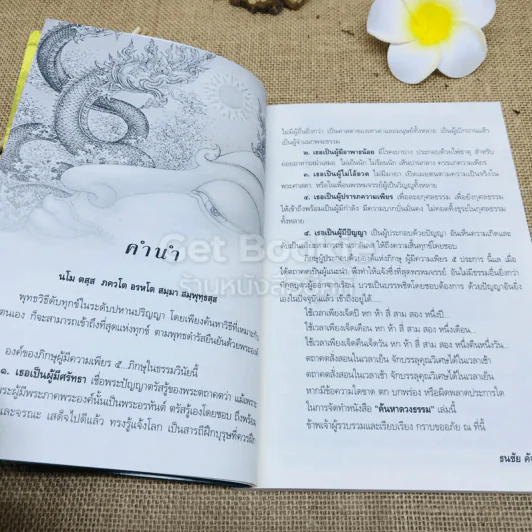 คำนำ
นโม ตสฺส ภควโต อรหโต สมฺมา สมฺพุทฺธสฺส
พุทธวิธีดับทุกข์ในระดับปหานปริญญา โดยเพียงค้นหาวิธีที่เหมาะกับ
ตนเอง ก็จะสามารถเข้าถึงที่สุดแห่งทุกข์ ตามพุทธดำรัสยืนยันด้วยพระองค์
องค์ของภิกษุผู้มีความเพียร ๕...ภิกษุในธรรมวินัยนี้
๑. เธอเป็นผู้มีศรัทธา เชื่อพระปัญญาตรัสรู้ของพระตถาคตว่า แม้เพราะ
พระผู้มีพระภาคพระองค์นั้นเป็นพระอรหันต์ ตรัสรู้เองโดยชอบ ถึงพร้อม
และจรณะ เสด็จไปดีแล้ว ทรงรู้แจ้งโลก เป็นสารถีฝึกบุรุษที่ควรฝึก
ไม่มีผู้อื่นยิ่งกว่า เป็นศาสดาของเทวดาและมนุษย์ทั้งหลาย เป็นผู้เบิกบานแล้ว
เป็นผู้จำแนกพระธรรม
๒. เธอเป็นผู้มีอาพาธน้อย มีโรคเบาบาง ประกอบด้วยไฟธาตุ สำหรับ
ย่อยอาหารสม่ำเสมอ ไม่เย็นนัก ไม่ร้อนนัก เป็นปานกลาง ควรแก่ความเพียร
๓. เธอเป็นผู้ไม่โอ้อวด ไม่มีมายา เปิดเผยตนตามความเป็นจริงใน
พระศาสดา หรือในเพื่อนพรหมจรรย์ผู้เป็นวิญญูทั้งหลาย
๔. เธอเป็นผู้ปรารภความเพียร เพื่อละอกุศลธรรม เพื่อยังกุศลธรรม
ให้เข้าถึงพร้อมเป็นผู้มีกำลัง มีความบากบั่นมั่นคง ไม่ทอดทิ้งธุระในกุศลธรรม
ทั้งหลาย
๕. เธอเป็นผู้มีปัญญา เป็นผู้ประกอบด้วยปัญญา อันเห็นความเกิดและ
ดับเป็นอริยะสามารถชำแรกกิเลส ให้ถึงความสิ้นทุกข์โดยชอบ
ภิกษุผู้ประกอบด้วยองค์แห่งภิกษุ ผู้มีความเพียร ๕ ประการ นี้แล เมื่อ
ได้ตถาคตเป็นผู้แนะนำ พึงทำให้แจ้งซึ่งที่สุดพรหมจรรย์ อันไม่มีธรรมอื่นยิ่งกว่า
ที่กุลบุตรทั้งหลายผู้ออกจากเรือน บวชเป็นบรรพชิตโดยชอบต้องการ ด้วยปัญญาอันยิ่ง
เองในปัจจุบันแล้ว เข้าถึงอยู่ได้....
ใช้เวลาเพียงเจ็ดปี หก ห้า สี่ สาม สอง หนึ่งปี...
ใช้เวลาเพียงเจ็ดเดือน หก ห้า สี่ สาม สอง หนึ่งเดือน...
ใช้เวลาเพียงเจ็ดคืนเจ็ดวัน หก ห้า สี่ สาม สอง หนึ่งคืนหนึ่งวัน...
ตถาคตสั่งสอนในเวลาเย็น จักบรรลุคุณวิเศษได้ในเวลาเช้า
ตถาคตสั่งสอนในเวลาเช้า จักบรรลุคุณวิเศษได้ในเวลาเย็น
หากมีข้อความใดขาด ตก บกพร่อง หรือผิดพลาดประการใด
ในการจัดทำหนังสือ "ค้นหาดวงธรรม" เล่มนี้
ข้าพเจ้าผู้รวบรวมและเรียบเรียง กราบขออภัย ณ ที่นี้
ธนชัย